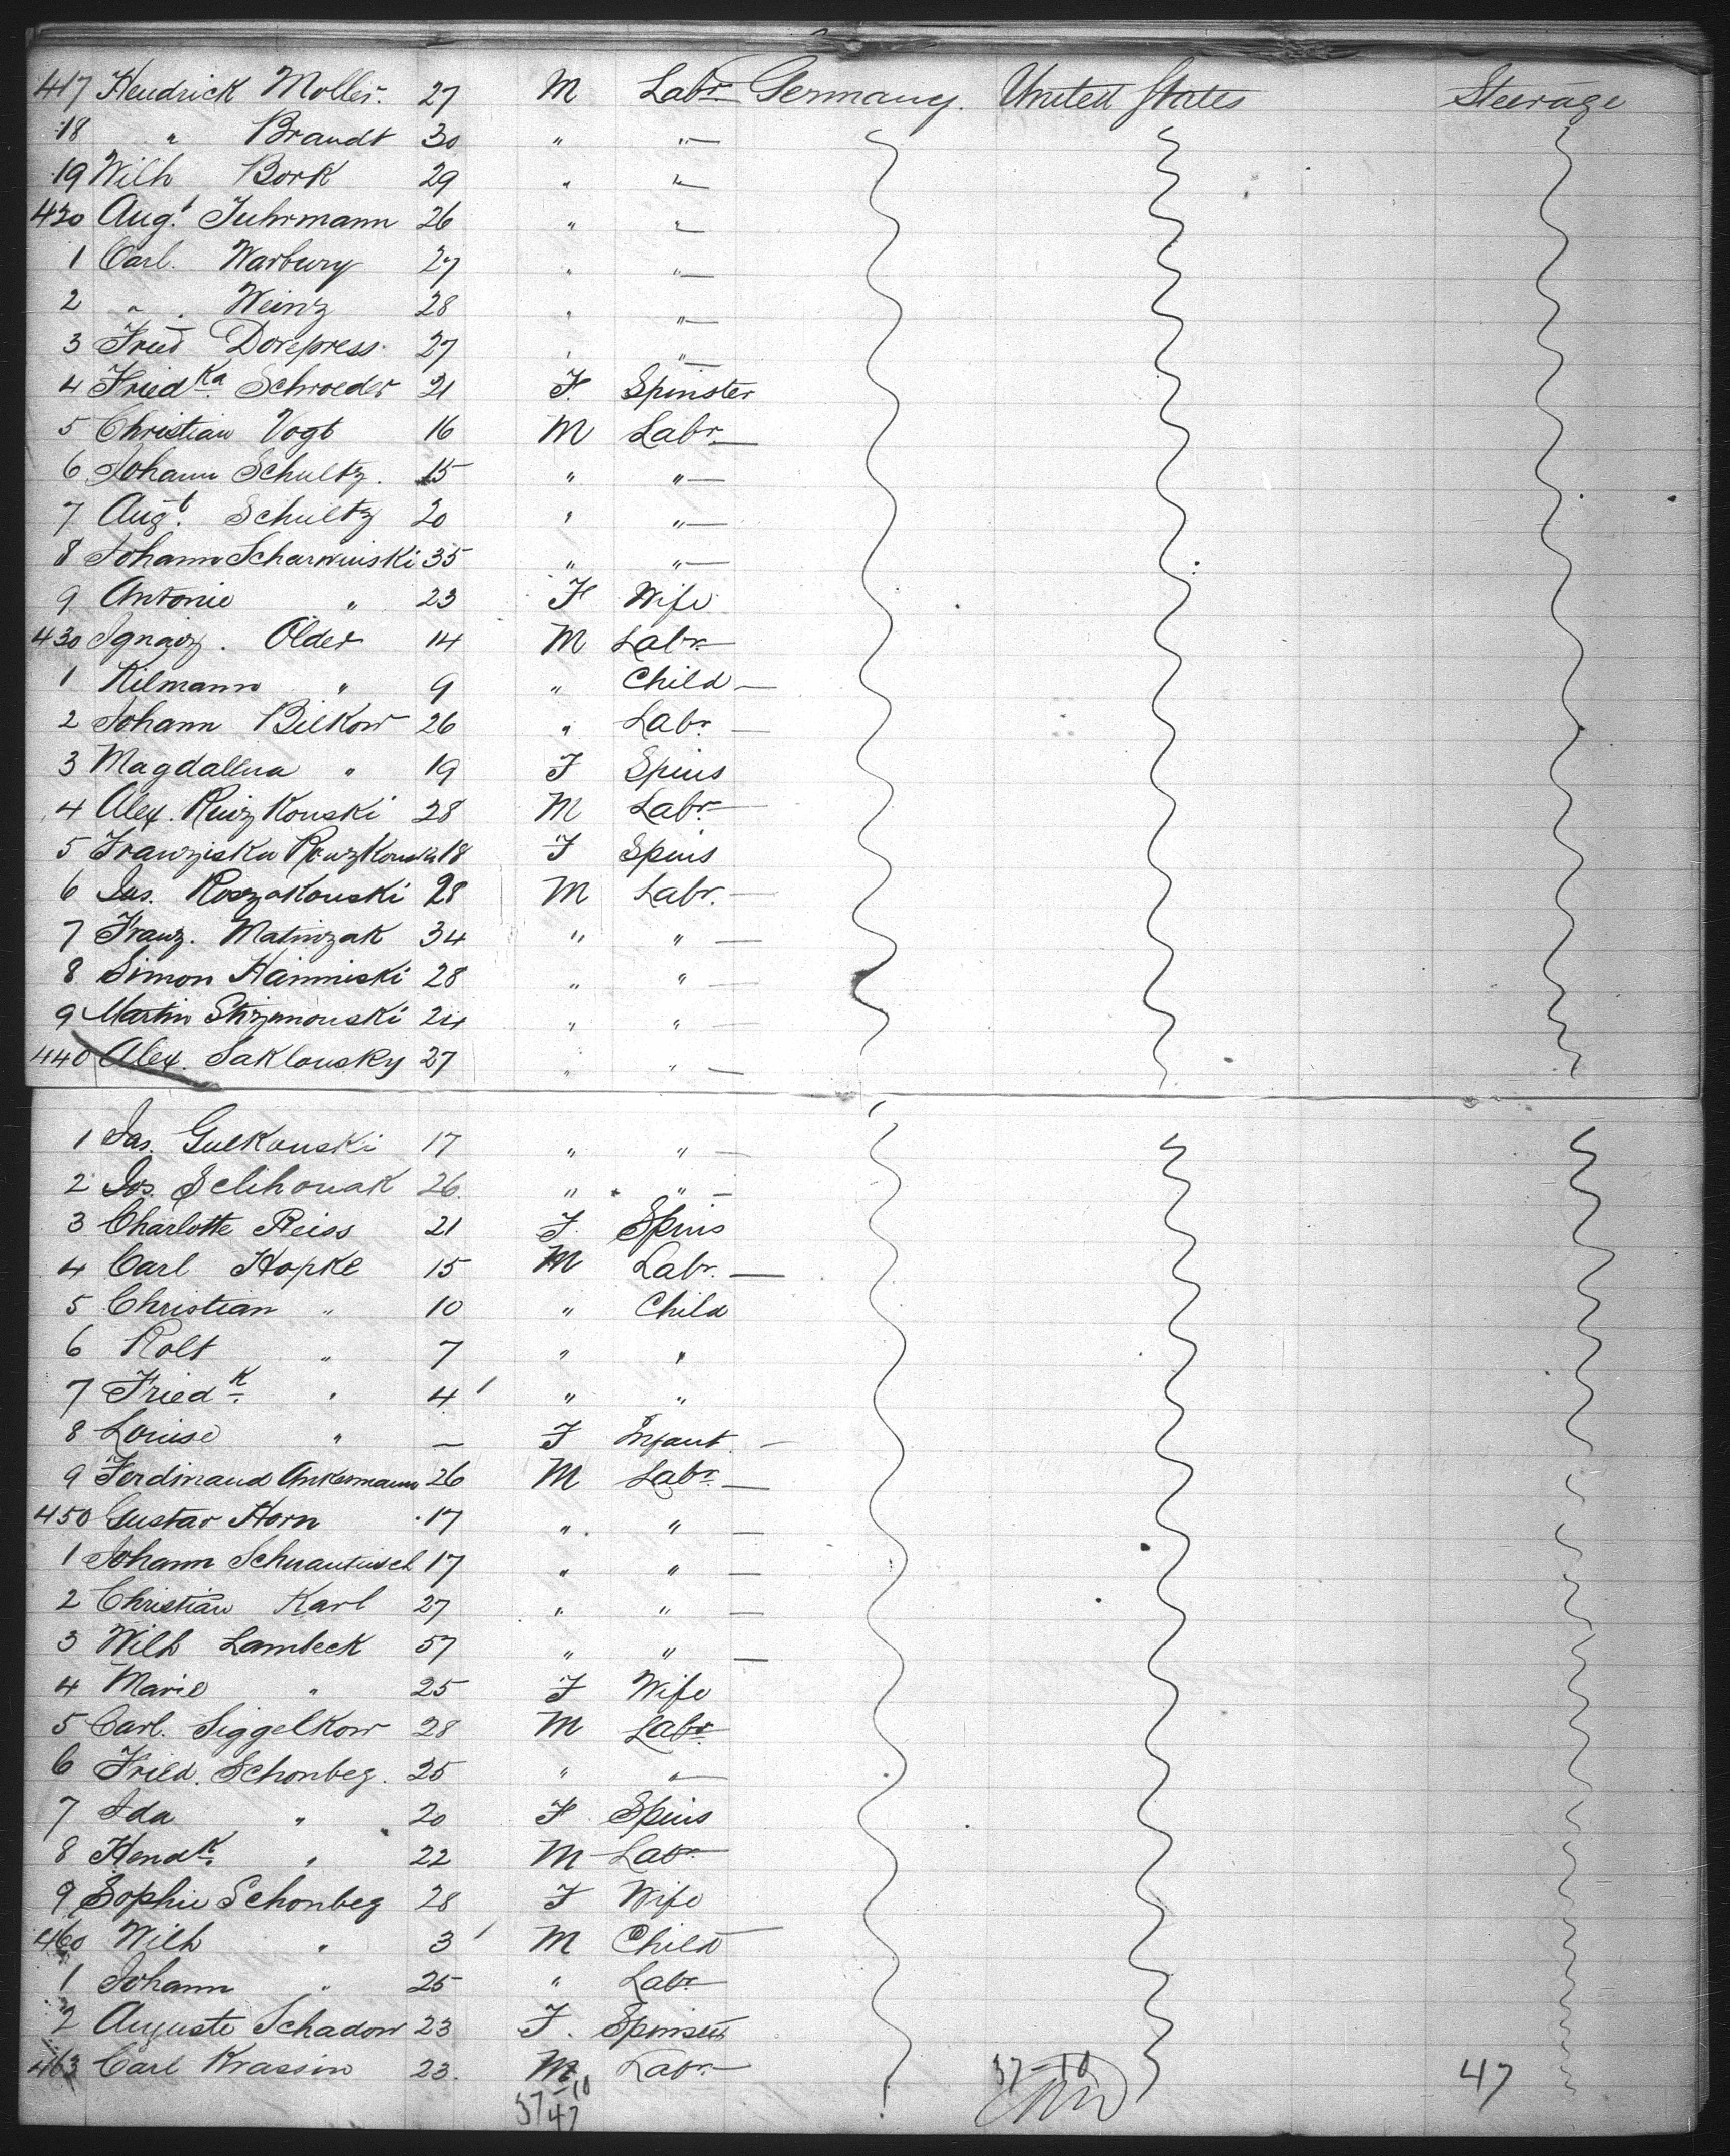 417 Hendrick Moller. 27 M Labr Germany. United States Steerage
18 " Brandt 30 " "
19 Wilh Bork 29 " "
420 Augt. Fuhrmann 26 " "
1 Carl. Warburg 27 " "
2 " Weinz 28 " "
3 Fried Dorepress 27 " "
4 Friedka. Schroeder 21 F. Spinster
5 Christian Vogt 16 M Labr.
6 Johann Schultz. 15 " "
7 Augt. Schultz 20 " "
8 Johann Scharwinski 35 " "
9 Antonie " 23 F Wife
430 Ignaiz. Older 14 M Labr.
1 Kilmann " 9 " Child
2 Johann Bilkow 26 " Labr
3 Magdallna " 19 F Spins
4 Alex. 28 M Labr.
5 Franziska 18 F Spins
6 Jas. Roszakouski 28 M Labr.
7 Franz. Matinzak 34 " "
8 Simon Kaminiski 28 " "
9 Martin 24 " "
440 Alex. Saklousky 27 " "
1 Jas. Gulkouski 17 " "
2 Jos. Selihouak 26. " "
3 Charlotte Reiss 21 F. Spins
4 Carl Hopke 15 M Labr.
5 Christian " 10 " Child
6 Rolt " 7 " "
7 Friedk. " 4 " "
8 Louise " — F Infant
9 Ferdinand Ankermann 26 M Labr
450 Gustav Horn 17 " "
1 Johann 17 " "
2 Christian Karl 27 " "
3 Wilh Lambeck 57 " "
4 Marie " 25 F Wife
5 Carl. Siggelkow 28 M Labr
6 Fried. Schonbeg. 25 " "
7 Ida " 20 F Spins
8 Hendk. " 22 M Labr
9 Sophie Schonbeg 28 F Wife
460 Wilh " 3 M Child
1 Johann " 25 " Labr
2 Auguste Schadow 23 F. Spinster
463 Carl Krassin 23. M Labr.
37-10 37-10 47
47